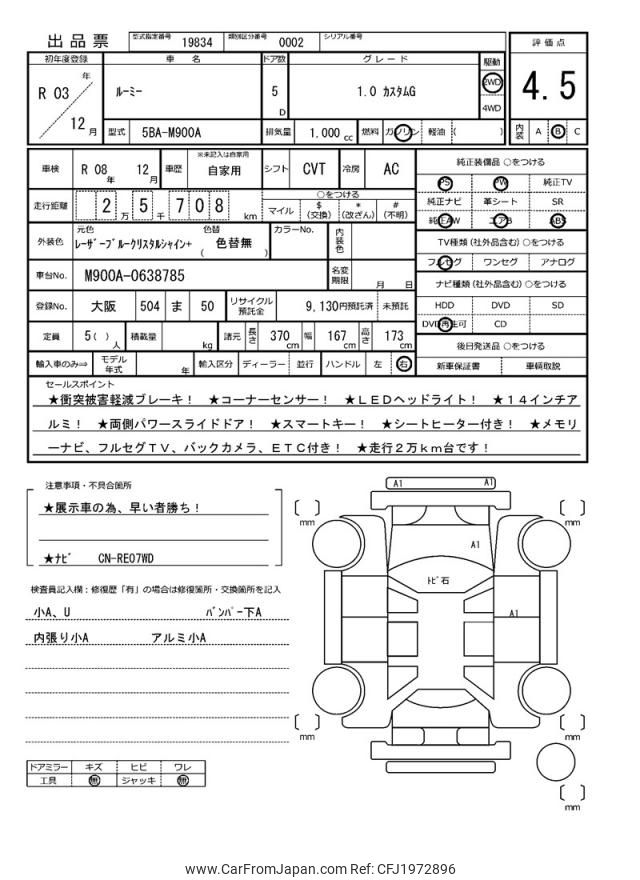 出品票 型式指定番号 19834 類別区分番号 0002 シリアル番号
初年度登録 車名 ドア数 グレード 駆動 評価点
R 03 年 12 月 ルーミー 5 D 1.0 カスタムG 2WD 4WD 4.5
型式 5BA-M900A 排気量 1,000 cc 燃料 ガソリン 軽油 ( ) 内装 A B C
車検 R 08 年 12 月 車歴 ※未記入は自家用 自家用 シフト CVT 冷房 AC
純正装備品 ○をつける
PS PW 純正TV
純正ナビ 革シート SR
純正AW エアB ABS
走行距離 2 万 5 千 7 0 8 km
○をつける
マイル $ (交換) * (改ざん) # (不明)
外装色 元色 レーザーブルークリスタルシャイン+ 色替 ( 色替無 ) カラーNo. 内装色
TV種類 (社外品含む) ○をつける
フルセグ ワンセグ アナログ
車台No. M900A-0638785 名変期限 月 日
ナビ種類 (社外品含む) ○をつける
HDD DVD SD
DVD再生可 CD
登録No. 大阪 504 ま 50 リサイクル預託金 9,130円預託済 未預託
定員 5 ( ) 人 積載量 kg 諸元 長さ 370 cm 幅 167 cm 高さ 173 cm
後日発送品 ○をつける
新車保証書 車輌取説
輸入車のみ⇒ モデル年式 年 輸入区分 ディーラー 並行 ハンドル 左 右
セールスポイント
★衝突被害軽減ブレーキ！ ★コーナーセンサー！ ★ＬＥＤヘッドライト！ ★１４インチア
ルミ！ ★両側パワースライドドア！ ★スマートキー！ ★シートヒーター付き！ ★メモリ
ーナビ、フルセグＴＶ、バックカメラ、ＥＴＣ付き！ ★走行２万ｋｍ台です！
注意事項・不具合箇所
★展示車の為、早い者勝ち！
★ﾅﾋﾞ CN-RE07WD
検査員記入欄：修復歴「有」の場合は修復箇所・交換箇所を記入
小A、U ﾊﾞﾝﾊﾟｰ下A
内張り小A アルミ小A
ドアミラー キズ ヒビ ワレ
工具 無 ジャッキ 無
A1 A1
mm mm
A1
ﾄﾋﾞ石
A1
mm mm
mm
www.CarFromJapan.com Ref: CFJ1972896